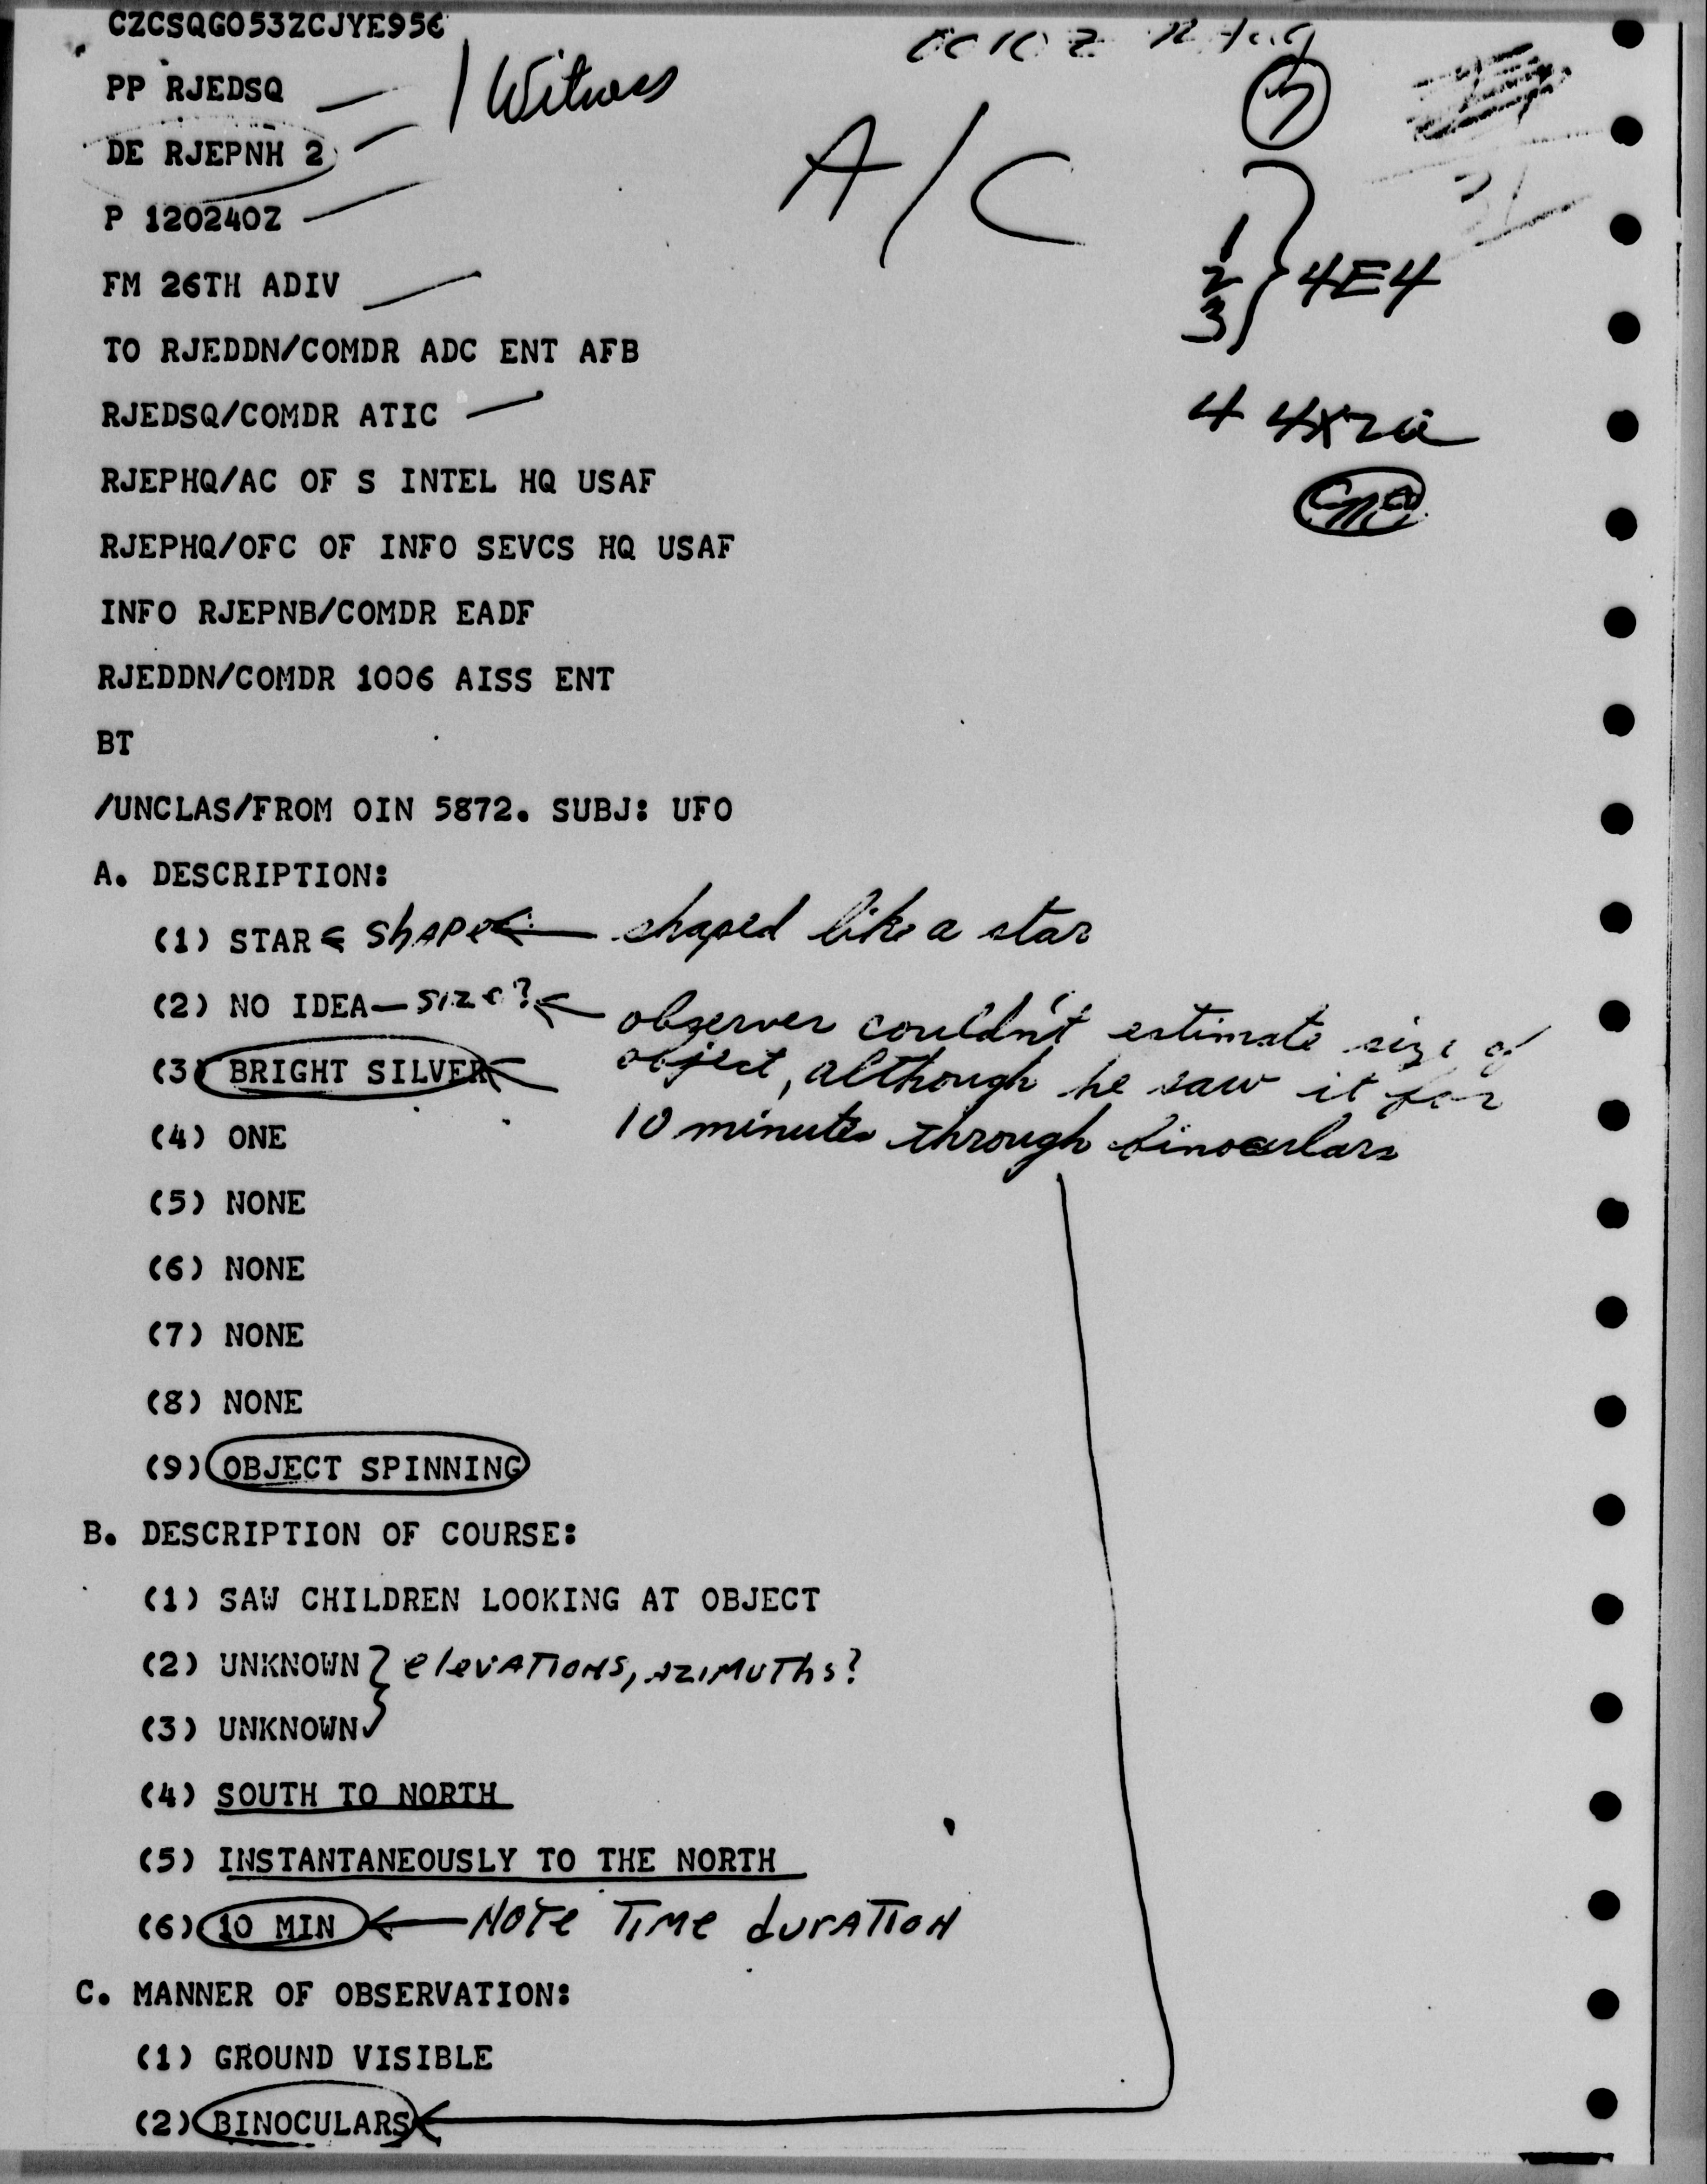 CZCSQGO53ZCJYE956
PP RJEDSQ
1 Witness
DE RJEPNH 2
A/C
P 120240Z
1
2
3 } 4E4
FM 26TH ADIV
TO RJEDDN/COMDR ADC ENT AFB
RJEDSQ/COMDR ATIC
4
RJEPHQ/AC OF S INTEL HQ USAF
RJEPHQ/OFC OF INFO SEVCS HQ USAF
INFO RJEPNB/COMDR EADF
RJEDDN/COMDR 1006 AISS ENT
BT
/UNCLAS/FROM OIN 5872. SUBJ: UFO
A. DESCRIPTION:
(1) STAR shape shaped like a star
(2) NO IDEA — size? observer couldn't estimate size of
(3) BRIGHT SILVER object, although he saw it for
(4) ONE 10 minutes through binoculars
(5) NONE
(6) NONE
(7) NONE
(8) NONE
(9) OBJECT SPINNING
B. DESCRIPTION OF COURSE:
(1) SAW CHILDREN LOOKING AT OBJECT
(2) UNKNOWN } elevations, azimuths?
(3) UNKNOWN
(4) SOUTH TO NORTH
(5) INSTANTANEOUSLY TO THE NORTH
(6) 10 MIN ← Note Time duration
C. MANNER OF OBSERVATION:
(1) GROUND VISIBLE
(2) BINOCULARS